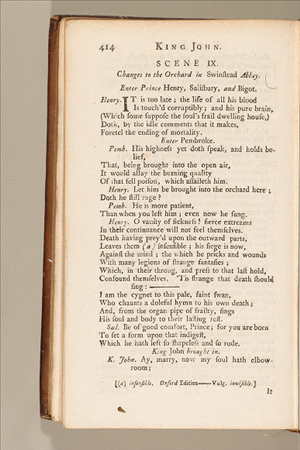 414 KING JOHN.
SCENE IX.
Changes to the Orchard in Swinstead Abbey.
Enter Prince Henry, Salisbury, and Bigot.
Henry. IT is too late; the life of all his blood
Is touch'd corruptibly; and his pure brain,
(Which some suppose the soul's frail dwelling house,)
Doth, by the idle comments that it makes,
Foretel the ending of mortality.
Enter Pembroke.
Pemb. His highness yet doth speak, and holds be-
lief,
That, being brought into the open air,
It would allay the burning quality
Of that fell poison, which assaileth him.
Henry. Let him be brought into the orchard here;
Doth he still rage?
Pemb. He is more patient,
Than when you left him; even now he sung.
Henry. O vanity of sickness! fierce extreams
In their continuance will not feel themselves.
Death having prey'd upon the outward parts,
Leaves them (a) insensible; his siege is now,
Against the mind; the which he pricks and wounds
With many legions of strange fantasies;
Which, in their throng, and press to that last hold,
Confound themselves. 'Tis strange that death should
sing:———
I am the cygnet to this pale, faint swan,
Who chaunts a doleful hymn to his own death;
And, from the organ-pipe of frailty, sings
His soul and body to their lasting rest.
Sal. Be of good comfort, Prince; for you are born
To set a form upon that indigest,
Which he hath left so shapeless and so rude.
King John brought in.
K. John. Ay, marry, now my soul hath elbow-
room;
[(a) insensible. Oxford Edition——Vulg. invisible.]
It